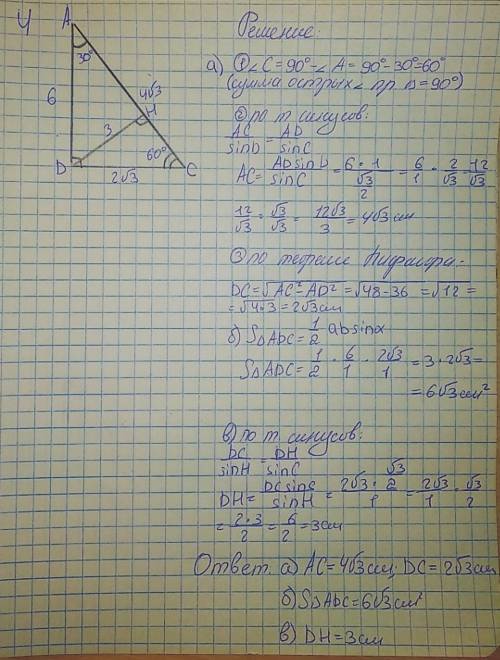 4
A
30°
6
4√3
H
3
60°
D
C
2√3
Решение:
а) ① ∠C=90°-∠A=90°-30°=60°
(сумма острых ∠ пр. Δ=90°)
② по т. синусов:
AC/sinD = AD/sinC
AC = ADsinD/sinC = 6·1/(√3/2) = 6/1 · 2/√3 = 12/√3
12/√3 · √3/√3 = 12√3/3 = 4√3 см
③ по теореме Пифагора:
DC=√AC²-AD² =√48-36 =√12 =
=√4·3 =2√3 см
б) SΔADC= 1/2 absinα
SΔADC= 1/2 · 6/1 · 2√3/1 = 3·2√3=
= 6√3 см²
в) по т. синусов:
DC/sinH = DH/sinC
DH= DCsinC/sinH = 2√3 · √3/2 / 1 = 2√3/1 · √3/2
= 2·3/2 = 6/2 = 3 см
Ответ: а) AC=4√3 см; DC=2√3 см
б) SΔADC=6√3 см²
в) DH=3 см